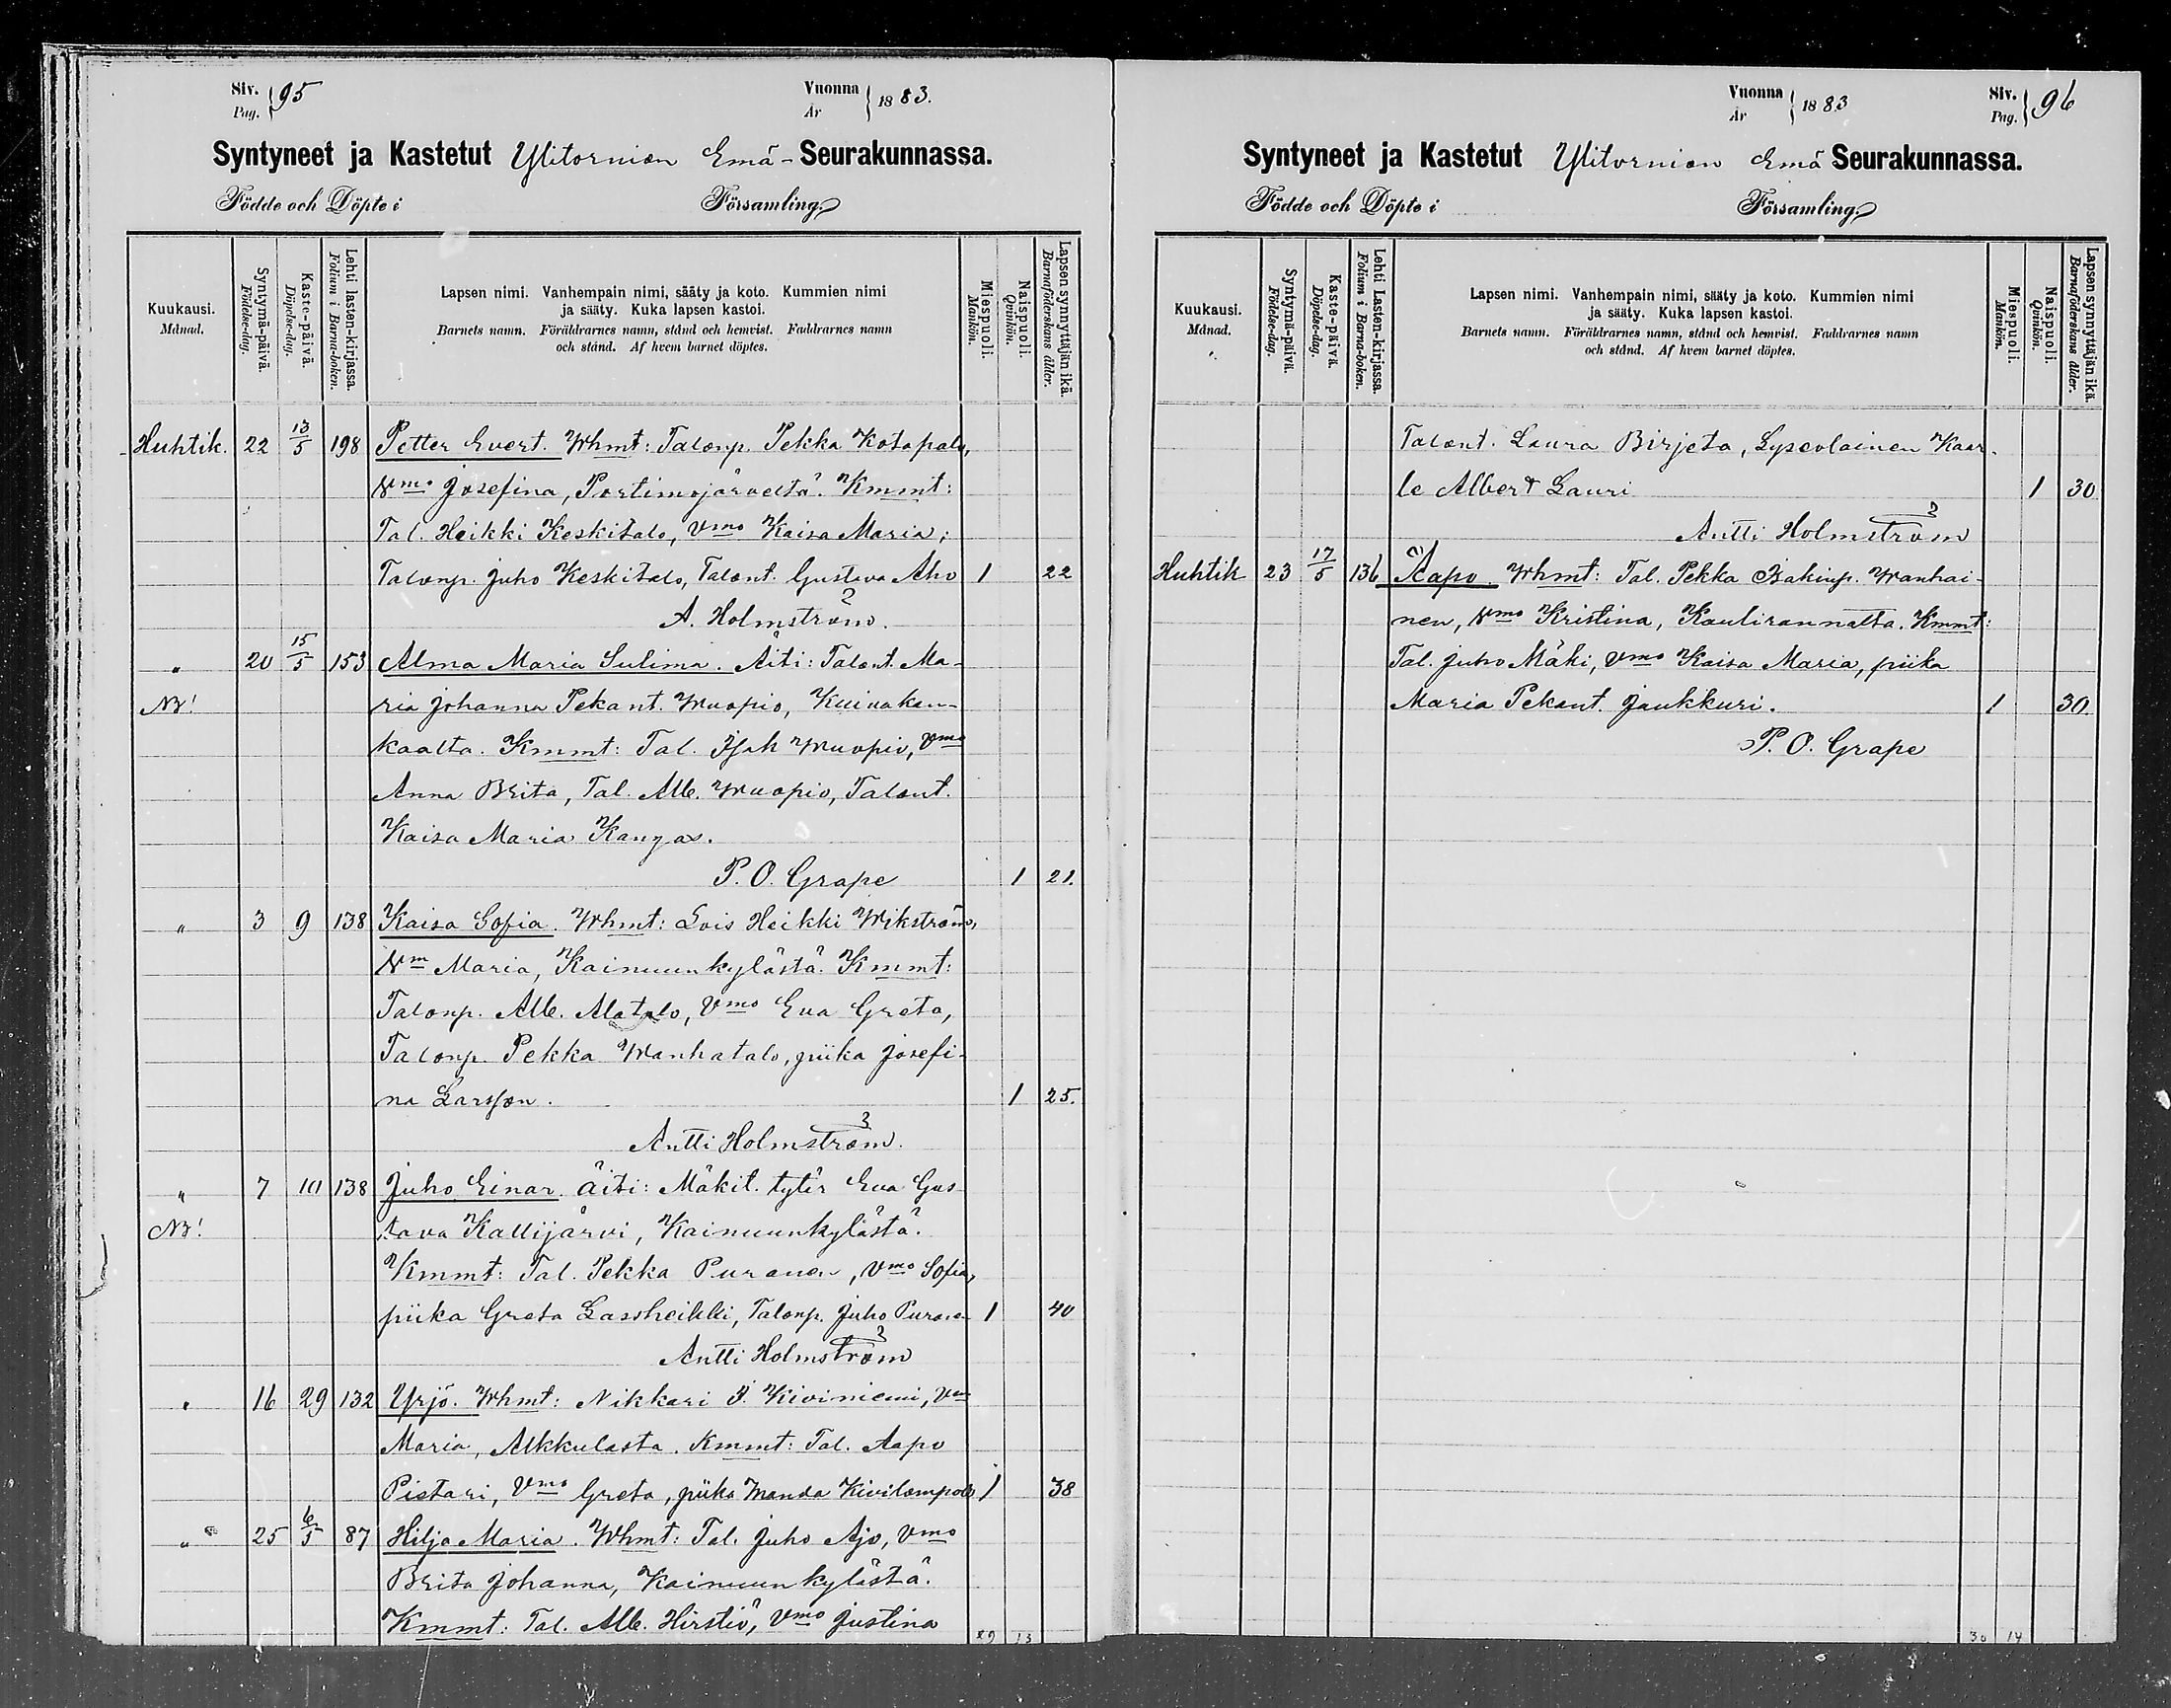 Siv. Pag. } 95
Vuonna År } 1883.
Syntyneet ja Kastetut Ylitornion Emä-Seurakunnassa.
Födde och Döpte i Församling.
Kuukausi. Månad.
Syntymä-päivä. Födelse-dag.
Kaste-päivä. Döpelse-dag.
Lehti lasten-kirjassa. Folium i Barna-boken.
Lapsen nimi. Vanhempain nimi, sääty ja koto. Kummien nimi
ja sääty. Kuka lapsen kastoi.
Barnets namn. Föräldrarnes namn, stånd och hemvist. Faddrarnes namn
och stånd. Af hvem barnet döptes.
Miespuoli. Mankön.
Naispuoli. Qvinkön.
Lapsen synnyttäjän ikä. Barnaföderskans ålder.
Huhtik. 22 13/5 198 Petter Evert. Whmt: Talonp. Pekka Kotapalo,
Vmo Josefina, Portimojärveltä. Kmmt:
Tal. Heikki Keskitalo, Vmo Kaisa Maria;
Talonp. Juho Keskitalo, Talont. Gustava Aho 1 22
A. Holmström.
" 20 15/5 153 Alma Maria Sulima. Äiti: Talont. Ma-
NB! ria Johanna Pekant. Wuopio, Kuivakan-
kaalta. Kmmt: Tal. Isak Wuopio, Vmo
Anna Brita, Tal. Alb. Wuopio, Talont.
Kaisa Maria Kangas.
P. O. Grape 1 21.
" 3 9 138 Kaisa Sofia. Whmt: Lois Heikki Wikström,
Vm Maria, Kainuunkylästä. Kmmt:
Talonp. Alb. Alatalo, Vmo Eva Greta,
Talonp. Pekka Wanhatalo, piika Josefi-
na Larsson. 1 25.
Antti Holmström.
" 7 10 138 Juho Einar. Äiti: Mäkit. tytär Eva Gus-
NB! tava Kallijärvi, Kainuunkylästä.
Kmmt: Tal. Pekka Puranen, Vmo Sofia,
piika Greta Lassheikki, Talonp. Juho Puranen 1 40
Antti Holmström
" 16 29 132 Yrjö. Whmt: Nikkari I. Kiviniemi, Vm
Maria, Alkkulasta. Kmmt: Tal. Aapo
Pistari, Vmo Greta, piika Wanda Kivilompolo 1 38
" 25 6/5 87 Hilja Maria. Whmt: Tal. Juho Ajo, Vmo
Brita Johanna, Kainuunkylästä.
Kmmt: Tal. Alb. Hirstiö, Vmo Justina
29 13
Vuonna År } 1883
Siv. Pag. } 96
Syntyneet ja Kastetut Ylitornion Emä Seurakunnassa.
Födde och Döpte i Församling.
Kuukausi. Månad.
Syntymä-päivä. Födelse-dag.
Kaste-päivä. Döpelse-dag.
Lehti Lasten-kirjassa. Folium i Barna-boken.
Lapsen nimi. Vanhempain nimi, sääty ja koto. Kummien nimi
ja sääty. Kuka lapsen kastoi.
Barnets namn. Föräldrarnes namn, stånd och hemvist. Faddrarnes namn
och stånd. Af hvem barnet döptes.
Miespuoli. Mankön.
Naispuoli. Qvinkön.
Lapsen synnyttäjän ikä. Barnaföderskans ålder.
Talont. Laura Birjeta, Lyseolainen Kaar-
le Albert Lauri 1 30
Antti Holmström
Huhtik 23 17/5 136 Aapo. Whmt: Tal. Pekka Isakinp. Wanhai-
nen, Vmo Kristina, Kaulirannalta. Kmmt:
Tal. Juho Mäki, Vmo Kaisa Maria, piika
Maria Pekant. Jaukkuri. 1 30.
P. O. Grape
30 14